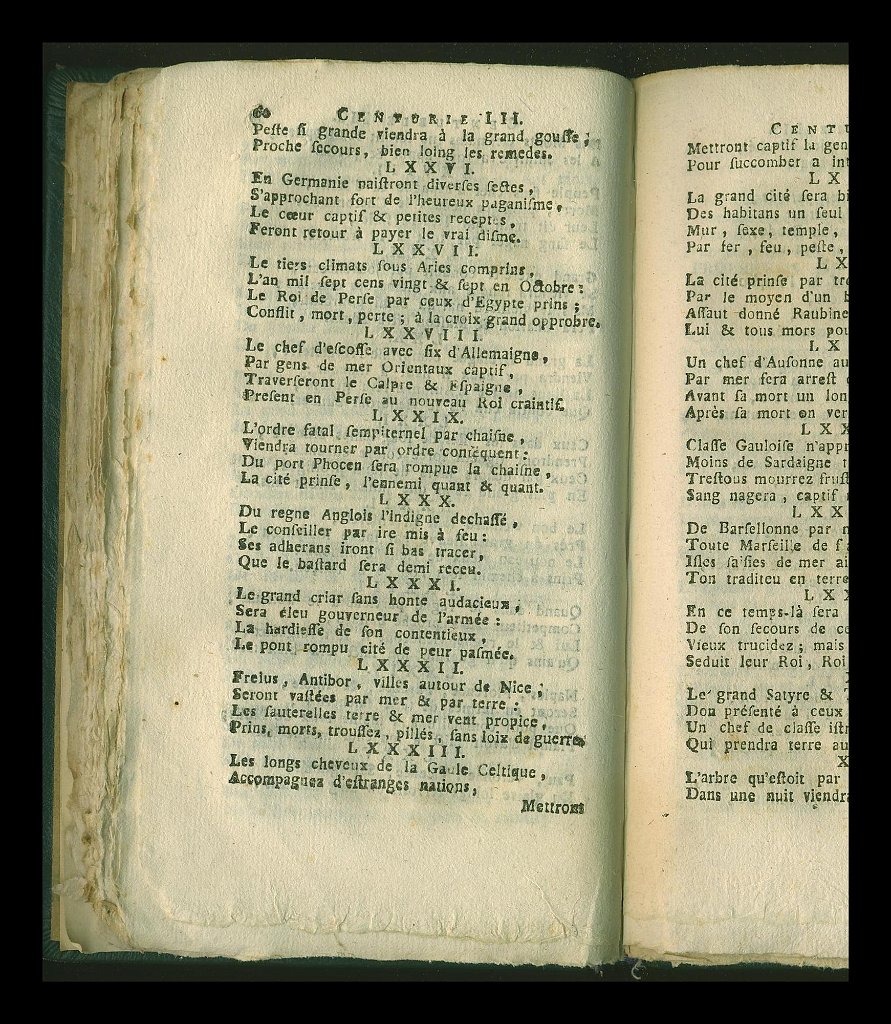 60 CENTURIE III.
Peſte ſi grande viendra à la grand gouſſe ;
Proche ſecours, bien loing les remedes.
LXXVI.
En Germanie naiſtront diverſes ſectes,
S'approchant fort de l'heureux paganiſme,
Le cœur captif & petites receptes,
Feront retour à payer le vrai diſme.
LXXVII.
Le tiers climats ſous Aries comprins,
L'an mil ſept cens vingt & ſept en Octobre :
Le Roi de Perſe par ceux d'Egypte prins ;
Conflit, mort, perte ; à la croix grand opprobre.
LXXVIII.
Le chef d'eſcoſſe avec ſix d'Allemaigne,
Par gens de mer Orientaux captif,
Traverſeront le Calpre & Eſpaigne,
Preſent en Perſe au nouveau Roi craintif.
LXXIX.
L'ordre fatal ſempiternel par chaiſne,
Viendra tourner par ordre conſequent :
Du port Phocen ſera rompue la chaiſne,
La cité prinſe, l'ennemi quant & quant.
LXXX.
Du regne Anglois l'indigne dechaſſé,
Le conſeiller par ire mis à feu :
Ses adherans iront ſi bas tracer,
Que le baſtard ſera demi receu.
LXXXI.
Le grand criar ſans honte audacieux ;
Sera éleu gouverneur de l'armée :
La hardieſſe de ſon contentieux,
Le pont rompu cité de peur paſmée.
LXXXII.
Freius, Antibor, villes autour de Nice ;
Seront vaſtées par mer & par terre :
Les ſauterelles terre & mer vent propice,
Prins, morts, trouſſez, pillés, ſans loix de guerre.
LXXXIII.
Les longs cheveux de la Gaule Celtique,
Accompagnez d'eſtranges nations,
Mettront
CENTU
Mettront captif la gen
Pour ſuccomber a int
LX
La grand cité ſera bi
Des habitans un ſeul
Mur, ſexe, temple,
Par fer, feu, peſte,
LX
La cité prinſe par tro
Par le moyen d'un
Aſſaut donné Raubine
Lui & tous mors pou
LX
Un chef d'Auſonne au
Par mer ſera arreſt
Avant ſa mort un lon
Après ſa mort on ver
LXX
Claſſe Gauloiſe n'appr
Moins de Sardaigne
Treſtous mourrez fruſt
Sang nagera, captif
LXX
De Barſellonne par
Toute Marſeille de
Iſles ſaiſies de mer ai
Ton traditeu en terre
LXX
En ce temps-là ſera
De ſon ſecours de
Vieux trucidez ; mais
Seduit leur Roi, Roi
Le grand Satyre &
Don préſenté à ceux
Un chef de claſſe iſtr
Qui prendra terre au
X
L'arbre qu'eſtoit par
Dans une nuit viendra